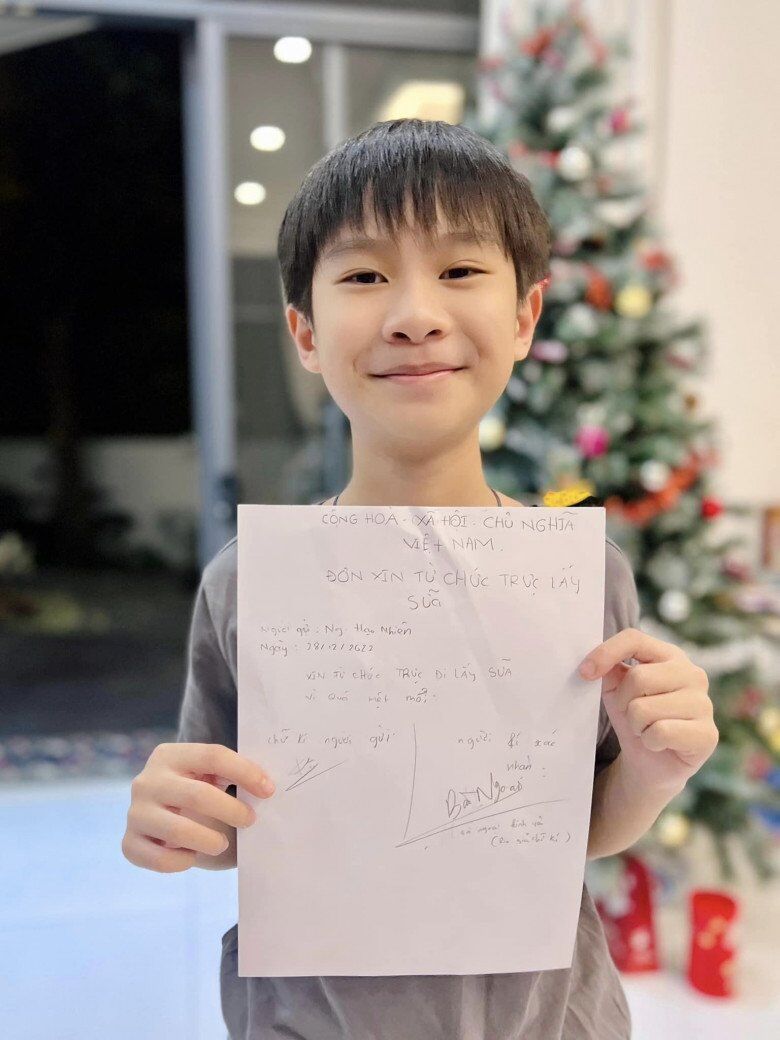 CỘNG HOÀ - XÃ HỘI - CHỦ NGHĨA
VIỆT NAM.
ĐƠN XIN TỪ CHỨC TRỰC LẤY
SỮA
Người gửi: Ng. Hạo Nhiên
Ngày: 28/12/2022
XIN TỪ CHỨC TRỰC ĐI LẤY SỮA
vì quá mệt mỏi.
chữ kí người gửi
người kí xác
nhận:
Bà Ngoại
người
chữ kí)